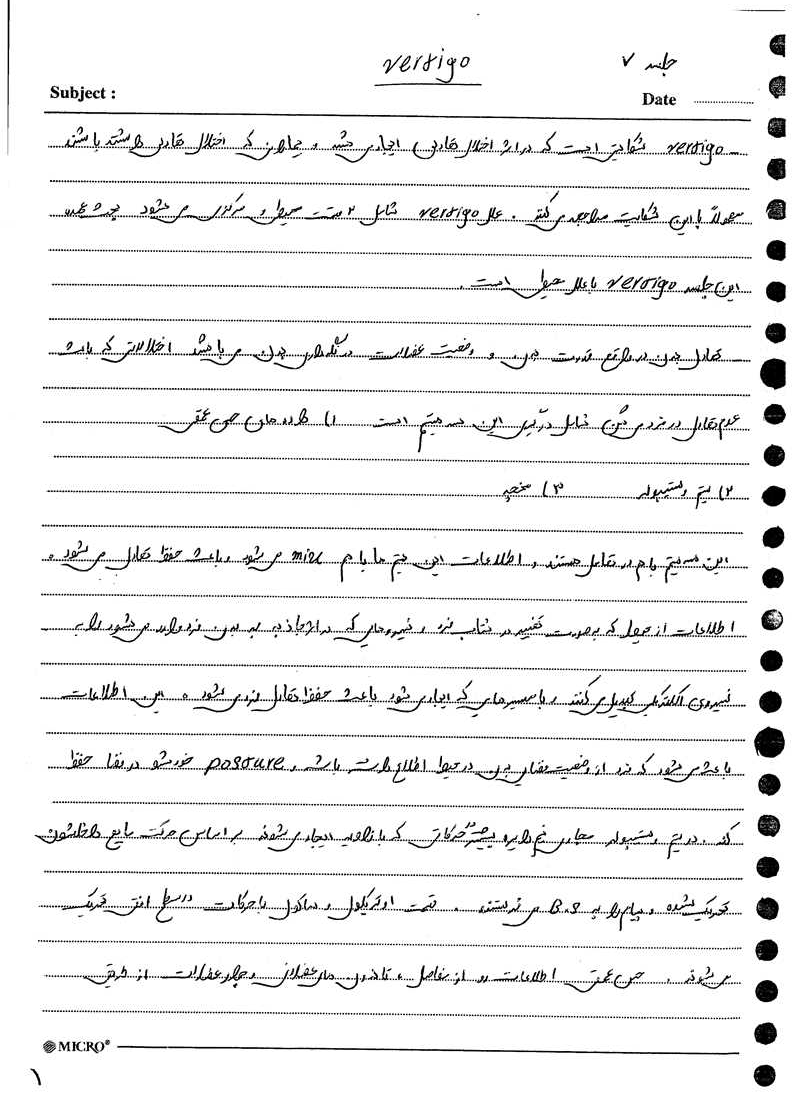 vertigo
جلسه ۷
Subject :
Date
ـ vertigo شکایتی است که در اثر اختلال تعادلی ایجاد می‌شه و بیمارانی که اختلال تعادلی داشته باشند
معمولاً با این شکایت مراجعه می‌کنند . علل vertigo شامل ۲ قسمت محیطی و مرکزی می‌شود بحث عمده
این جلسه vertigo با علل محیطی است .
ـ تعادل بدن در واقع قدرت بدن و وضعیت عضلات در نگهداری بدن می‌باشد اختلالاتی که باعث
عدم تعادل در فرد می‌شن شامل درگیری این سه سیستم است ۱) گیرنده‌های حس عمقی
۲) سیستم وستیبولر ۳) مخچه
این سه سیستم با هم در تعامل هستند و اطلاعات این سیستم ها با هم mix می‌شود و باعث حفظ تعادل می‌شود .
اطلاعات از محیط که به صورت تغییر در شتاب فرد و نیروهایی که در اثر جاذبه به بدن فرد وارد می‌شود را به
نیروی الکتریکی تبدیل می‌کنند و با مسیرهایی که ایجاد می‌شود باعث حفظ تعادل فرد می‌شود . این اطلاعات
باعث می‌شود که فرد از وضعیت فضایی بدن در محیط اطلاع داشته باشد و posture خودشو در فضا حفظ
کند . در سیستم وستیبولر مجاری نیم دایره بیشتر حرکاتی که با زاویه ایجاد می‌شوند بر اساس حرکت مایع داخلشون
تحریک شده و پیام را به B.S می‌فرستند . قسمت اوتریکول و ساکول با حرکات در سطح افق تحریک
می‌شوند . حس عمقی اطلاعات رو از مفاصل ، تاندون های عضلانی و خود عضلات از طریق
MICRO®
۱